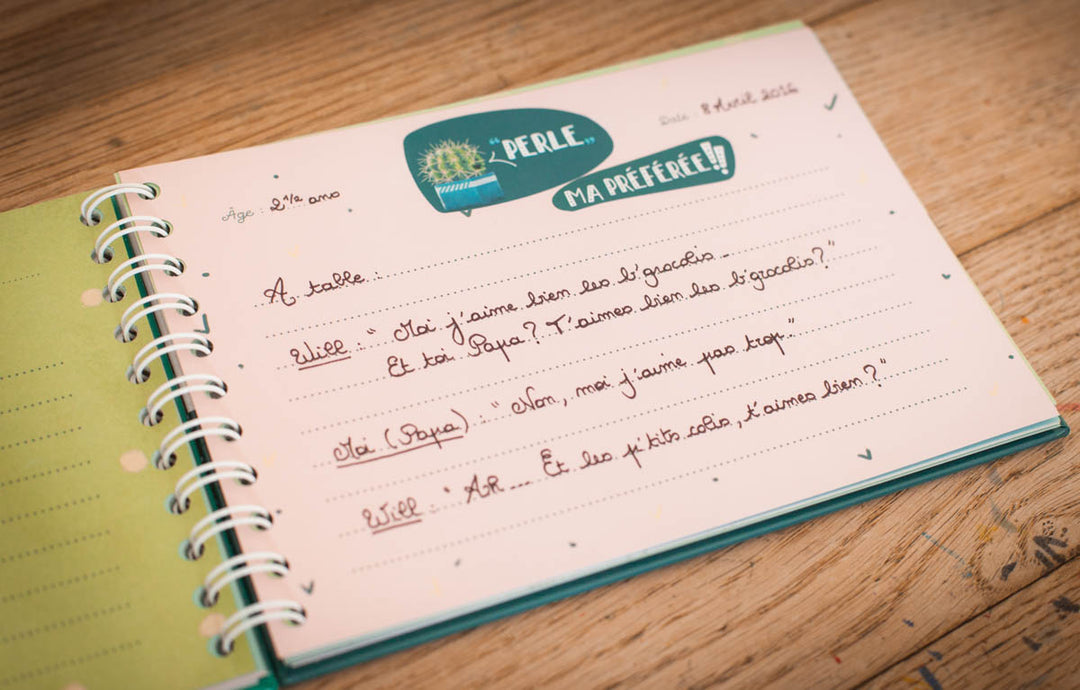 Date : 8 Avril 2016
"PERLE"
MA PRÉFÉRÉE!!
Âge : 2 1/2 ans
A table :
Will : " Moi j'aime bien les b'grocolis...
Et toi Papa ? T'aimes bien les b'grocolis ? "
Moi (Papa) : " Non, moi j'aime pas trop. "
Will : " AR.... Et les p'tits colis, t'aimes bien ? "